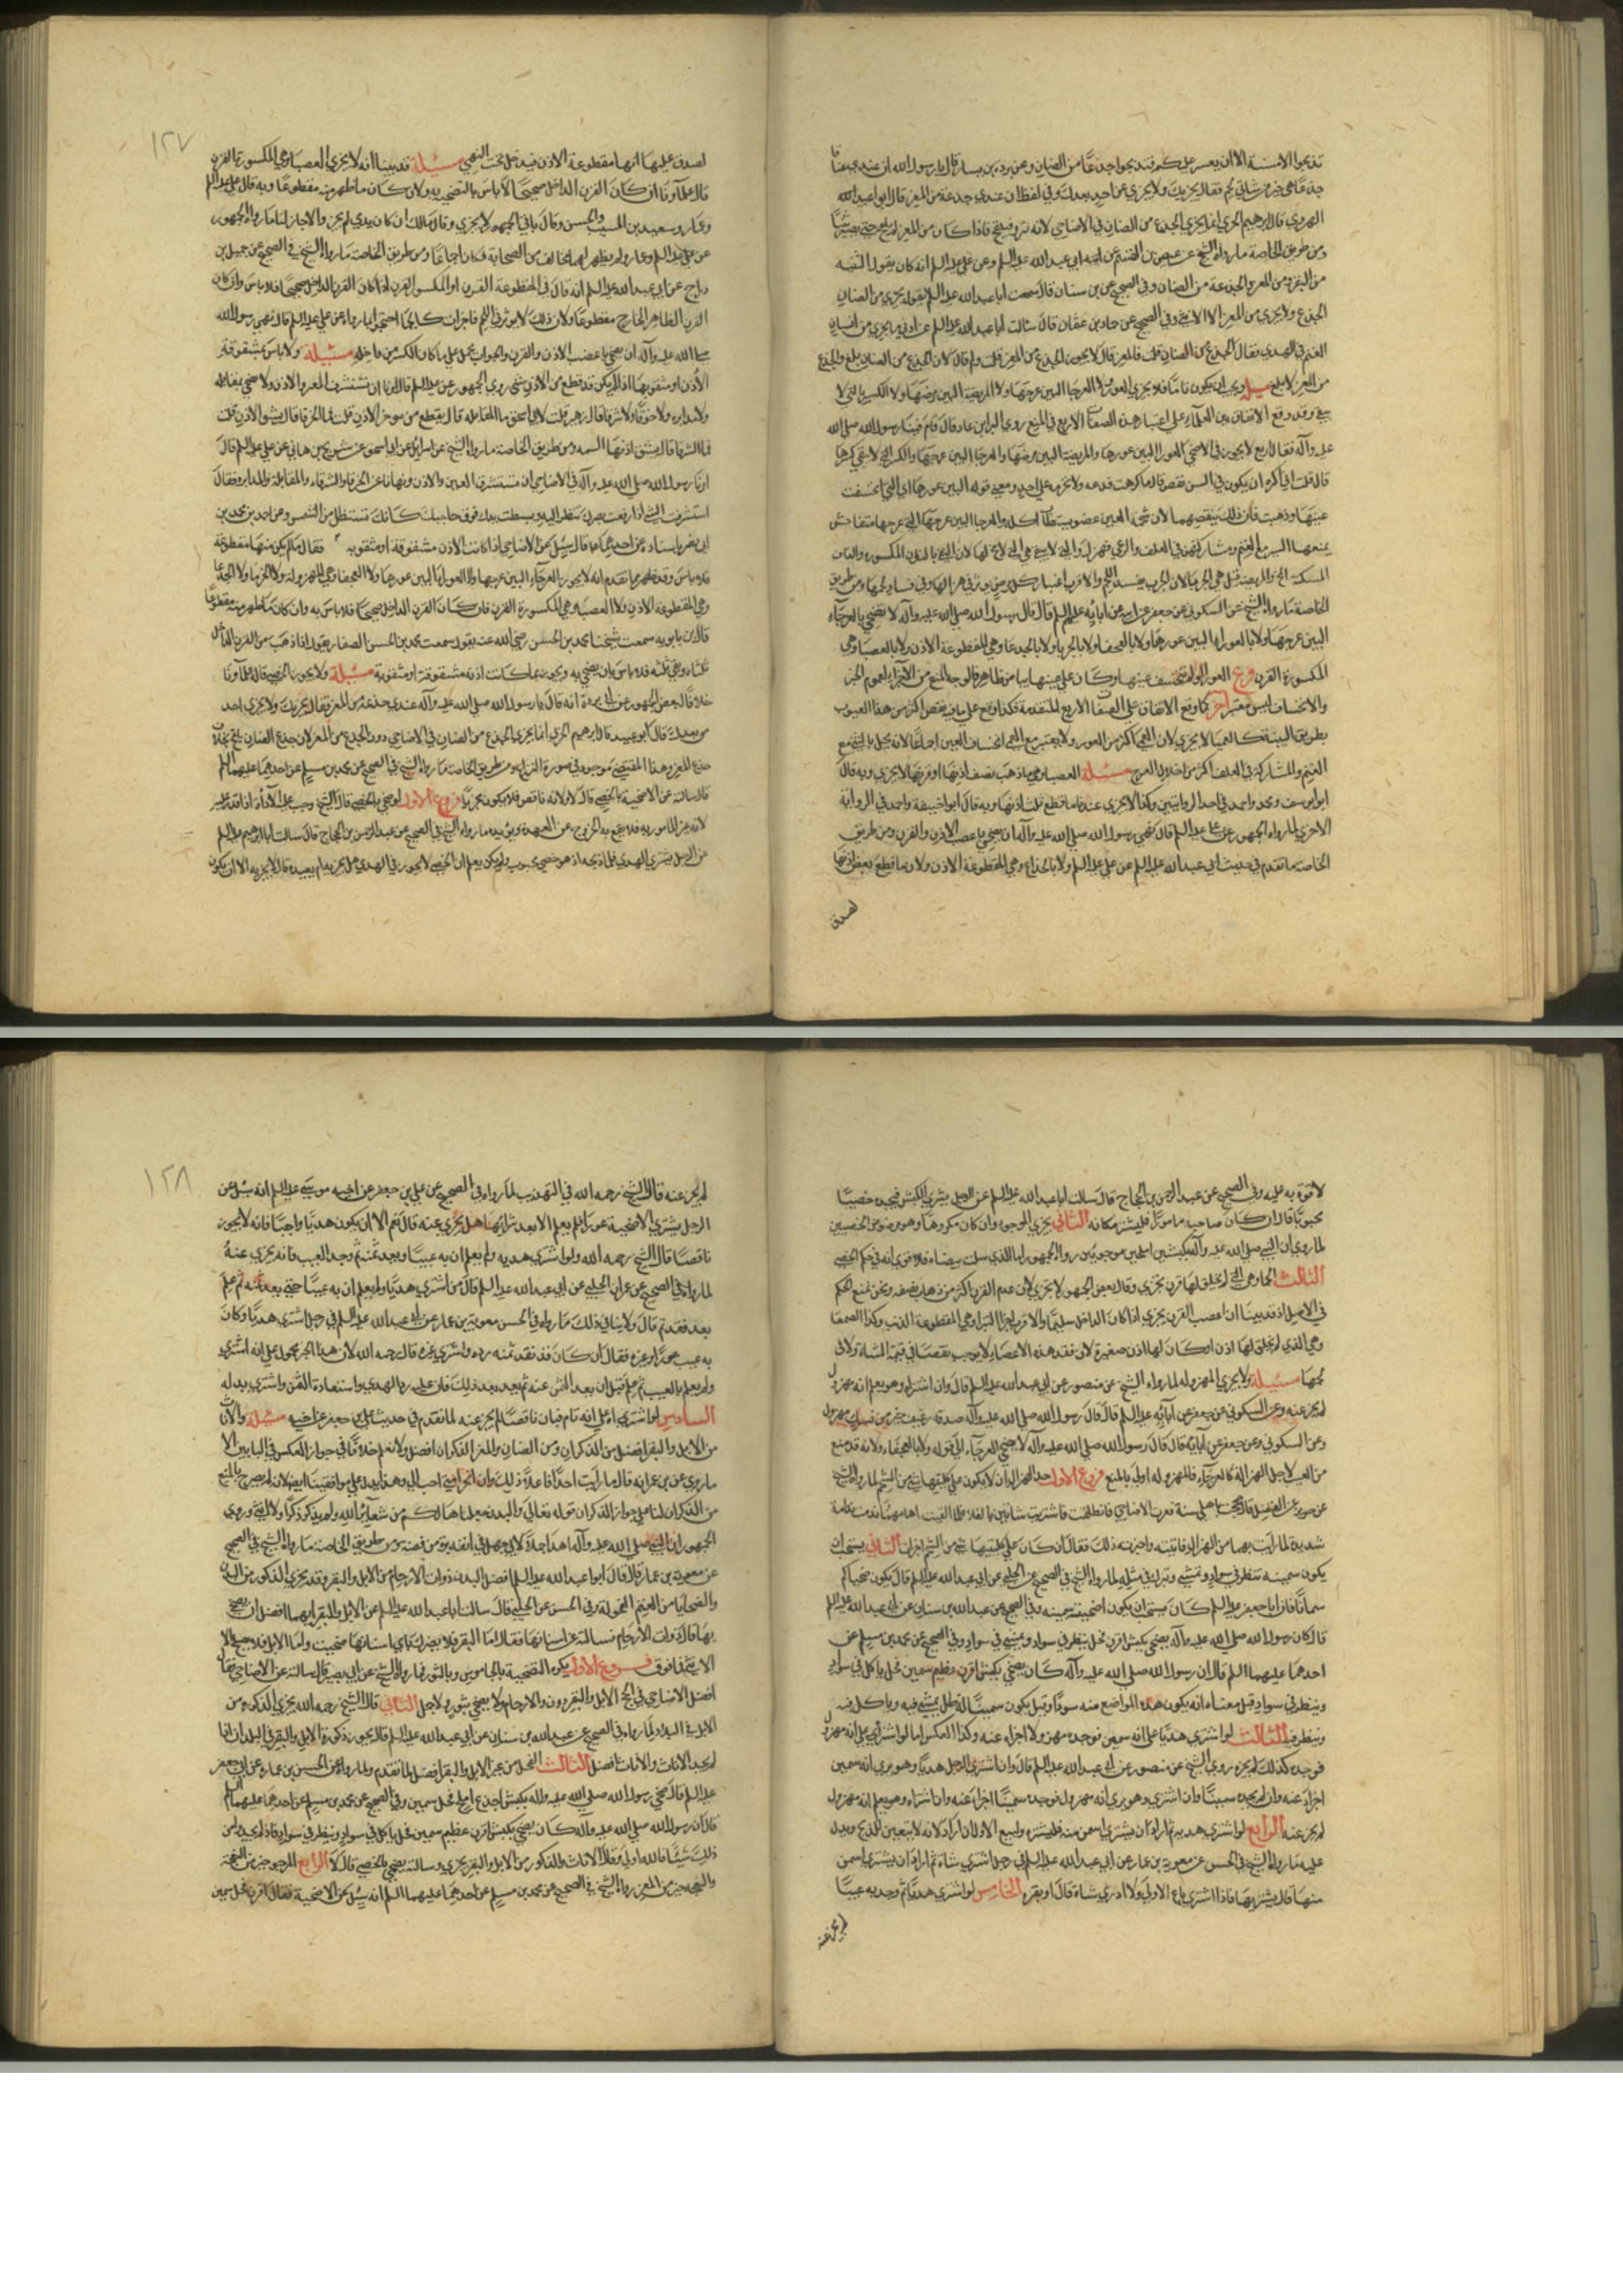 تذبحوا الا مسنة الا ان يعسر عليكم فتذبحوا جذعا من الضان وعن بردة بن يسار قال يا رسول الله ان عندى عناقا
جذعا هي خير من شاتي لحم فقال يجزيك ولا يجزي عن احد بعدك وفي لفظ ان عندي جذعة من المعز قال ابو عبد الله
الهروي قال ابرهيم الحربي انما يجزي الجذع من الضان في الاضاحي لانه ينزو فيلقح فاذا كان من المعز لم يلقح حتى يصير ثنيا
ومن طريق الخاصة ما رواه الشيخ عن عيص بن القسم عن ابي عبد الله عليه السلم وعن علي عليه السلم انه كان يقول الثنية
من البقر ومن المعز والجذعة من الضان وفي الصحيح عن بن سنان قال سمعت ابا عبد الله عليه السلم يقول يجزي من الضان
الجذع ولا يجزي من المعز الا الثني وفي الصحيح عن حماد بن عثمان قال سالت ابا عبد الله عليه السلم عن ادنى ما يجزي من اسنان
الغنم في الهدي فقال الجذع من الضان قلت فالمعز قال لا يجوز الجذع من المعز قلت ولم قال لان الجذع من الضان يلقح والجذع
من المعز لا يلقح مسئلة ويجب ان يكون تاما فلا يجزي العورا ولا العرجا البين عرجها ولا المريضة البين مرضها ولا الكسير التي لا
عليه وآله فقال اربع لا يجوز في الاضحى العورا البين عورها والمريضة البين مرضها والعرجا البين عرجها والكسر التي لا تنقي
قال قلت اني اكره ان يكون في السن نقص قال ما كرهت فدعه ولا تحرمه على احد ومعنى قوله البين عورها اي التي انخسفت
الخاصة ما رواه الشيخ عن السكوني عن جعفر عن ابيه عن آبائه عليهم السلم قال قال رسول الله صلى الله عليه وآله لا تضحي بالعرجآء
البين عرجها ولا بالعوراء البين عورها ولا بالعجفا ولا بالجربا ولا بالجدعا وهي المقطوعة الاذن ولا بالعضبا وهي
المكسورة القرن فرع العورا لو لم تنخسف عينها وكان على عينها بياض ظاهر فالوجه المنع من الاجزاء لعموم الخبر
والانخساف ليس معتبر آخر كما وقع الاتفاق على الصفات الاربع المتقدمة فكذا وقع على ما فيه نقص اكثر من هذه العيوب
بطريق البينة كالعميا لا يجزي لان العمى اكثر من العور ولا يعتبر مع العمى انخساف العين اجماعا لانه يخل بالمشي مع
الغنم والمشاركة في العلف اكثر من اخلال العرج مسئلة العضبا وهي ما ذهب نصف اذنها او قرنها لا يجزي وبه قال
ابو يوسف ومحمد واحمد في احد الروايتين وكذا لا يجزي عندنا ما قطع ثلث اذنها وبه قال ابو حنيفة واحمد في الرواية
الاخرى لما رواه الجمهور عن علي عليه السلم قال نهى رسول الله صلى الله عليه وآله ان يضحي باعضب الاذن والقرن ومن طريق
الخاصة ما تقدم في حديث ابي عبد الله عليه السلم عن علي عليه السلم ولا بالجدعاء وهي المقطوعة الاذن ولان ما قطع بعض اذنها
لصدق
١٢٧
لصدق عليها انها مقطوعة الاذن فيدخل تحت النهي مسئلة قد بينا انه لا يجزي العضبا وهي المكسورة القرن
قال علمآؤنا ان كان القرن الداخل صحيحا لا باس بالتضحية به وان كان ما ظهر منه مقطوعا وبه قال علي عليه السلم
وعمار وسعيد بن المسيب والحسن وقال باقي الجمهور لا يجزي وقال مالك ان كان يدمي لم يجز والا جاز لنا ما رواه الجمهور
دراج عن ابي عبد الله عليه السلم انه قال في المقطوعة القرن او المكسور القرن اذا كان القرن الداخل صحيحا فلا باس وان كان
القرن الظاهر الخارج مقطوعا ولان ذلك لا يؤثر في اللحم فاجزات كالجما احتجوا بما رواه عن علي عليه السلم قال نهى رسول الله
صلى الله عليه وآله ان يضحي باعضب الاذن والقرن والجواب يحمل على ما كان الكسر من داخله مسئلة ولا باس بمشقوقة
ولا مدابرة ولا خرقا ولا شرقا قال زهير قلت لابي اسحق ما المقابلة قال يقطع من موخر الاذن قلت فما الخرقا قال يشق الاذن قلت
فما الشرقا قال يشق اذنها السمة ومن طريق الخاصة ما رواه الشيخ عن اسرائيل عن ابي اسحق عن شريح بن هاني عن علي عليه السلم قال
امرنا رسول الله صلى الله عليه وآله في الاضاحي ان نستشرف العين والاذن ونهانا عن الخرقا والشرقاء والمقابلة والمدابرة فقال
ابي نصر باسناده عن احدهما عليهما قال سئل عن الاضاحي اذا كانت الاذن مشقوقة او مثقوبة فقال ما لم يكن منها مقطوعة
وهي المقطوعة الاذن ولا العضبا وهي المكسورة القرن فان كان القرن الداخل صحيحا فلا باس به وان كان ما ظهر منه مقطوعا
قال بن بابويه سمعت شيخنا محمد بن الحسن رضي الله عنه يقول سمعت محمد بن الحسن الصفار يقول اذا ذهب من القرن الداخل
ثلثاه وبقي ثلثه فلا باس بان يضحي به ويجوز بما كانت اذنه مشقوقة او مثقوبة مسئلة ولا يجوز الخصي قاله علمآؤنا
الغنم
قال سالته عن الاضحية بالخصي قال لا ولانه ناقص فلا يكون مجزيا فروع الاول لو ضحى بالخصي قال الشيخ وجب عليه الاعادة اذا قدر عليه
لانه غير المامور به فلا يقع به الخروج عن العهدة ويؤيده ما رواه الشيخ في الصحيح عن عبد الرحمن بن الحجاج قال سالت ابا ابرهيم عليه السلم
عن الرجل يشتري الهدي فلما ذبحه اذ هو خصي مجبوب ولم يكن يعلم ان الخصي لا يجوز في الهدي هل يجزيه ام يعيده قال لا يجزيه الا ان يكون
لا قوة به عليه وفي الصحيح عن عبد الرحمن بن الحجاج قال سالت ابا عبد الله عليه السلم عن الرجل يشتري الكبش فيجده خصيا
مجبوبا قال ان كان صاحبه موسرا فليشتر مكانه الثاني يجزي الموجوء وان كان مكروها وهو مرضوض الخصيتين
الثالث الجما وهي التي لم يخلق لها قرن تجزي وقال بعض الجمهور لا يجزي لان عدم القرن اكثر من ذهاب نصفه ونحن نمنع الحكم
في الاصل اذ قد بينا ان اعضب القرن يجزي اذا كان الداخل سليما والاقرب اجزا البترا وهي المقطوعة الذنب وكذا الصمعا
وهي الذي لم يخلق لها اذن او كان لها اذن صغيرة لان فقد هذه الاعضاء لا يوجب نقصا في قيمة الشاة ولا في
لحمها مسئلة ولا يجزي المهزولة لما رواه الشيخ عن منصور عن ابي عبد الله عليه السلم قال وان اشتراه وهو يعلم انه مهزول
لم يجز عنه وعن السكوني عن جعفر عن آبائه عليه السلم قال قال رسول الله صلى الله عليه وآله صدقة رغيف خير من نسك مهزول
وعن السكوني وعن جعفر عن آبائه قال قال رسول الله صلى الله عليه وآله لا يضحى بالعرجآء الى قوله ولا بالعجفاء ولانه قد منع
من العيب لاجل الهزال كالعرجآء فالمهزولة اولى بالمنع فروع الاول حد الهزال ان لا يكون على كليتها شيء من الشحم لما رواه الشيخ
شديدة لما رايت بهما من الهزال فاتيته واخبرته ذلك فقال ان كان على كليتيهما شيء من الشحم اجزات الثاني يستحب ان
يكون سمينة تنظر في سواد وتمشي وتبرك في مثله لما رواه الشيخ في الصحيح عن الحلبي عن ابي عبد الله عليه السلم قال يكون ضحاياكم
سمانا فان ابا جعفر عليه السلم كان يستحب ان يكون اضحيته سمينة وفي الصحيح عن عبد الله بن سنان عن ابي عبد الله عليه السلم
قال كان رسول الله صلى الله عليه وآله يضحي بكبش اقرن فحل ينظر في سواد ويمشي في سواد وفي الصحيح عن محمد بن مسلم عن
احدهما عليهما السلم قال ان رسول الله صلى الله عليه وآله كان يضحي بكبش اقرن عظيم سمين فحل ياكل في سواد
وينظر في سواد قيل معناه انه يكون هذه المواضع منه سودا وقيل يكون سمينا له ظل يمشي فيه وياكل فيه
وينظر فيه الثالث لو اشترى هديا على انه سمين فوجده مهزولا اجزاه عنه وكذا العكس اما لو اشتراه على انه مهزول
فوجده كذلك لم يجزه روى الشيخ عن منصور عن ابي عبد الله عليه السلم قال وان اشترى الرجل هديا وهو يرى انه سمين
اجزأ عنه وان لم يجده سمينا وان اشترى وهو يرى انه مهزول فوجده سمينا اجزأ عنه وان اشتراه وهو يعلم انه مهزول
لم يجز عنه الرابع لو اشترى هديه ثم اراد ان يشتري اسمن منه فليشتره وليبع الاول ان اراد لانه لا يتعين للذبح ويدل
عليه ما رواه الشيخ في الحسن عن معوية بن عمار عن ابي عبد الله عليه السلم في رجل اشترى شاة ثم اراد ان يشتري اسمن
منها قال يشتريها فاذا اشترى باع الاولى ولا ادري شاة قال او بقرة الخامس لو اشترى هديا ثم وجد به عيبا
لم يجز عنه
١٢٨
لم يجز عنه قاله الشيخ رحمه الله في التهذيب لما رواه في الصحيح عن علي بن جعفر عن اخيه موسى عليه السلم انه سئل عن
الرجل يشتري الاضحية عوراء فلم يعلم الا بعد شرائها هل يجزي عنه قال نعم الا ان يكون هديا واجبا فانه لا يجوز
ناقصا قال الشيخ رحمه الله ولو اشترى هديه ولم يعلم ان به عيبا ونقد ثمنه ثم وجد العيب فانه يجزي عنه
لما رواه في الصحيح عن عمران الحلبي عن ابي عبد الله عليه السلم قال من اشترى هديا ولم يعلم ان به عيبا حتى نقد ثمنه ثم علم
بعد فقد تم قال ولا ينافي ذلك ما رواه في الحسن معوية بن عمار عن ابي عبد الله عليه السلم في رجل اشترى هديا وكان
به عيب عور او غيره فقال ان كان قد نقد ثمنه رده واشترى غيره قال رحمه الله لان هذا الخبر محمول على انه اشترى
ولم يعلم بالعيب ثم علم قبل ان ينقد الثمن عنه ثم نقد بعد ذلك فان عليه رد الهدي واستعادة الثمن واشترى بدله
السادس لو اشتراه على انه تام فبان ناقصا لم يجز عنه لما تقدم في حديث علي بن جعفر عن اخيه مسئلة والاناث
من الابل والبقر افضل من الذكران ومن الضان والمعز الذكران افضل ولا نعلم خلافا في جواز العكس في البابين الا
ما روي عن بن عمر انه قال ما رايت احدا فاعلا ذلك وان انحر انثى احب الي وهذا يدل على موافقتنا ايضا لانه لم يصرح بالمنع
من الذكران لنا على جواز الذكران قوله تعالى والبدن جعلناها لكم من شعآئر الله ولم يذكر ذكرا ولا انثى وروى
الجمهور ان النبي صلى الله عليه وآله اهدا جملا لابي جهل في انفه برة من فضة ومن طريق الخاصة ما رواه الشيخ في الصحيح
عن معوية بن عمار قال قال ابو عبد الله عليه السلم افضل البدن ذوات الارحام من الابل والبقر وقد يجزي الذكورة من البدن
والضحايا من الغنم الفحولة وفي الحسن عن الحلبي قال سالت ابا عبد الله عليه السلم عن الابل والبقر ايهما افضل ان يضحى
بها قال ذوات الارحام فسالته عن اسنانها فقال اما البقر فلا يضرك باي اسنانها ضحيت واما الابل فلا يصلح الا
الثني فما فوق فروع الاول يكره التضحية بالجاموس وبالثور لما رواه الشيخ عن ابي بصير قال سالته عن الاضاحي فقال
افضل الاضاحي في الحج الابل والبقر وذوو الارحام ولا يضحى بثور ولا جمل الثاني قال الشيخ رحمه الله يجزي الذكورة من
الابل في البلاد لما رواه في الصحيح عن عبد الله بن سنان عن ابي عبد الله عليه السلم قال يجوز ذكورة الابل والبقر في البلدان اذا
لم يجد الاناث والاناث افضل الثالث الفحل من غير الابل والبقر افضل لما تقدم ولما رواه عن الحسين بن عمارة عن ابي جعفر
عليه السلم قال ضحى رسول الله صلى الله عليه وآله بكبش اجذع املح فحل سمين وفي الصحيح عن محمد بن مسلم عن احدهما عليهما السلم
قال ان رسول الله صلى الله عليه وآله كان يضحي بكبش اقرن عظيم سمين فحل ياكل في سواد وينظر في سواد فاذا لم يجد من
ذلك شيئا فالله اولى وقال الاناث والذكور من الابل والبقر يجزي وسالته يضحي بالخصي قال لا الرابع الموجوء خير من النعجة
والنعجة خير من المعز روى الشيخ في الصحيح عن محمد بن مسلم عن احدهما عليهما السلم انه سئل عن الاضحية فقال اقرن فحل سمين